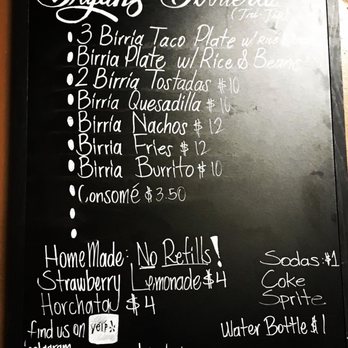 Birrieria
(Tri-Tip)
3 Birria Taco Plate w/ Rice
Birria Plate w/ Rice & Beans
2 Birria Tostadas $10
Birria Quesadilla $10
Birria Nachos $12
Birria Fries $12
Birria Burrito $10
Consomé $3.50
HomeMade: No Refills!
Strawberry Lemonade $4
Horchata $4
Sodas: $1
Coke
Sprite
find us on yelp
Water Bottle $1